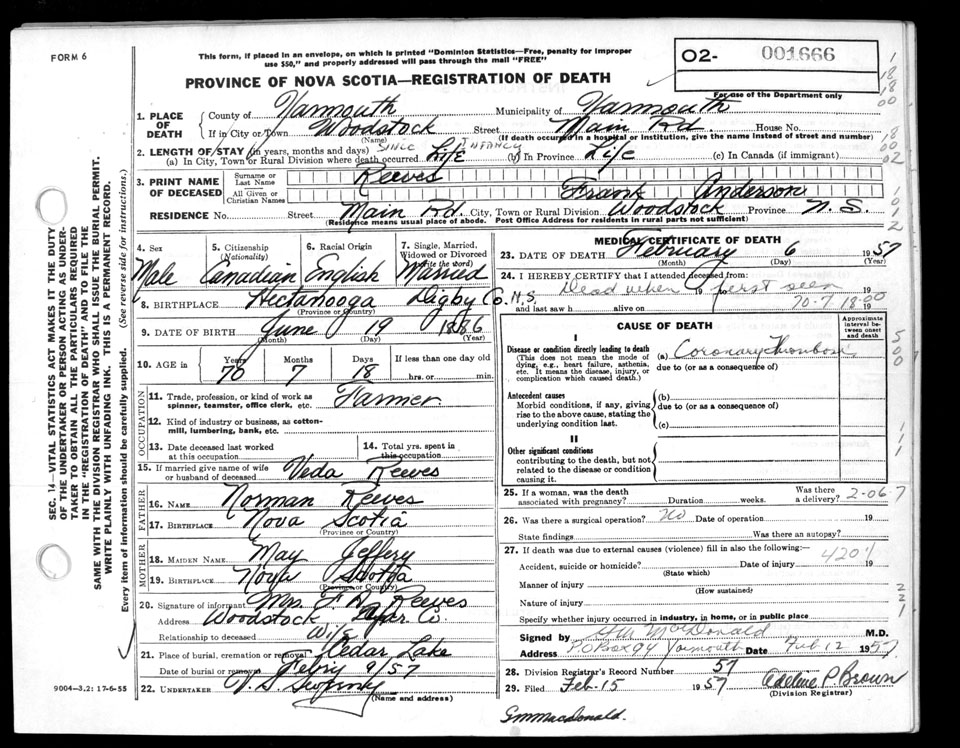 FORM 6
This form, if placed in an envelope, on which is printed "Dominion Statistics—Free, penalty for improper
use $50," and properly addressed will pass through the mail "FREE"
PROVINCE OF NOVA SCOTIA—REGISTRATION OF DEATH
02- 001666
For use of the Department only
1. PLACE OF DEATH
County of Yarmouth Municipality of Yarmouth
If in City or Town Woodstock Street Main Rd House No.
(Name) (If death occurred in a hospital or institution, give the name instead of street and number)
2. LENGTH OF STAY (in years, months and days) SINCE INFANCY
(a) In City, Town or Rural Division where death occurred Life (b) In Province Life (c) In Canada (if immigrant)
3. PRINT NAME OF DECEASED
Surname or Last Name Reeves
All Given or Christian Names Frank Anderson
RESIDENCE No. Street Main Rd. City, Town or Rural Division Woodstock Province N.S.
(Residence means usual place of abode. Post Office Address for residents in rural parts not sufficient)
4. Sex Male
5. Citizenship (Nationality) Canadian
6. Racial Origin English
7. Single, Married, Widowed or Divorced (Write the word) Married
8. BIRTHPLACE Hectanooga Digby Co. N.S.
(Province or Country)
9. DATE OF BIRTH June 19 1886
(Month) (Day) (Year)
10. AGE in Years 70 Months 7 Days 18 If less than one day old
hrs. or min.
OCCUPATION
11. Trade, profession, or kind of work as
spinner, teamster, office clerk, etc. Farmer.
12. Kind of industry or business, as cotton-
mill, lumbering, bank, etc.
13. Date deceased last worked
at this occupation
14. Total yrs. spent in
this occupation
15. If married give name of wife
or husband of deceased Veda Reeves
FATHER
16. NAME Norman Reeves
17. BIRTHPLACE Nova Scotia
(Province or Country)
MOTHER
18. MAIDEN NAME May Jeffery
19. BIRTHPLACE Nova Scotia
(Province or Country)
20. Signature of informant Mrs. F. A. Reeves
Address Woodstock Yar. Co.
Relationship to deceased Wife
21. Place of burial, cremation or removal Cedar Lake
Date of burial or removal Feb'ry 9/57
22. UNDERTAKER
(Name and address)
MEDICAL CERTIFICATE OF DEATH
23. DATE OF DEATH February 6 1957
(Month) (Day) (Year)
24. I HEREBY CERTIFY that I attended deceased from:
Dead when first seen 19
and last saw h alive on 19
70-7 18-00
CAUSE OF DEATH
Approximate interval between onset and death
I
Disease or condition directly leading to death
(This does not mean the mode of
dying, e.g., heart failure, asthenia,
etc. It means the disease, injury, or
complication which caused death.)
(a) Coronary Thrombosis
due to (or as a consequence of)
Antecedent causes
Morbid conditions, if any, giving
rise to the above cause, stating the
underlying condition last.
(b)
due to (or as a consequence of)
(c)
II
Other significant conditions
contributing to the death, but not
related to the disease or condition
causing it.
25. If a woman, was the death
associated with pregnancy? Duration weeks. Was there
a delivery? 2-06-7
26. Was there a surgical operation? No Date of operation 19
State findings Was there an autopsy?
27. If death was due to external causes (violence) fill in also the following:—
4201
Accident, suicide or homicide? Date of injury 19
(State which)
Manner of injury
(How sustained)
Nature of injury
Specify whether injury occurred in industry, in home, or in public place
Signed by McDonald M.D.
Address P.O Box 94 Yarmouth Date Feb 12 1957
28. Division Registrar's Record Number 57
29. Filed Feb-15 1957 Adeline P Brown
(Division Registrar)
GMMacdonald.
9004—3.2: 17-6-55
SEC. 14—VITAL STATISTICS ACT MAKES IT THE DUTY
OF THE UNDERTAKER OR PERSON ACTING AS UNDER-
TAKER TO OBTAIN ALL THE PARTICULARS REQUIRED
IN THE "REGISTRATION OF DEATH" AND TO FILE THE
SAME WITH THE DIVISION REGISTRAR WHO SHALL ISSUE THE BURIAL PERMIT.
WRITE PLAINLY WITH UNFADING INK. THIS IS A PERMANENT RECORD.
Every item of information should be carefully supplied. (See reverse side for instructions.)